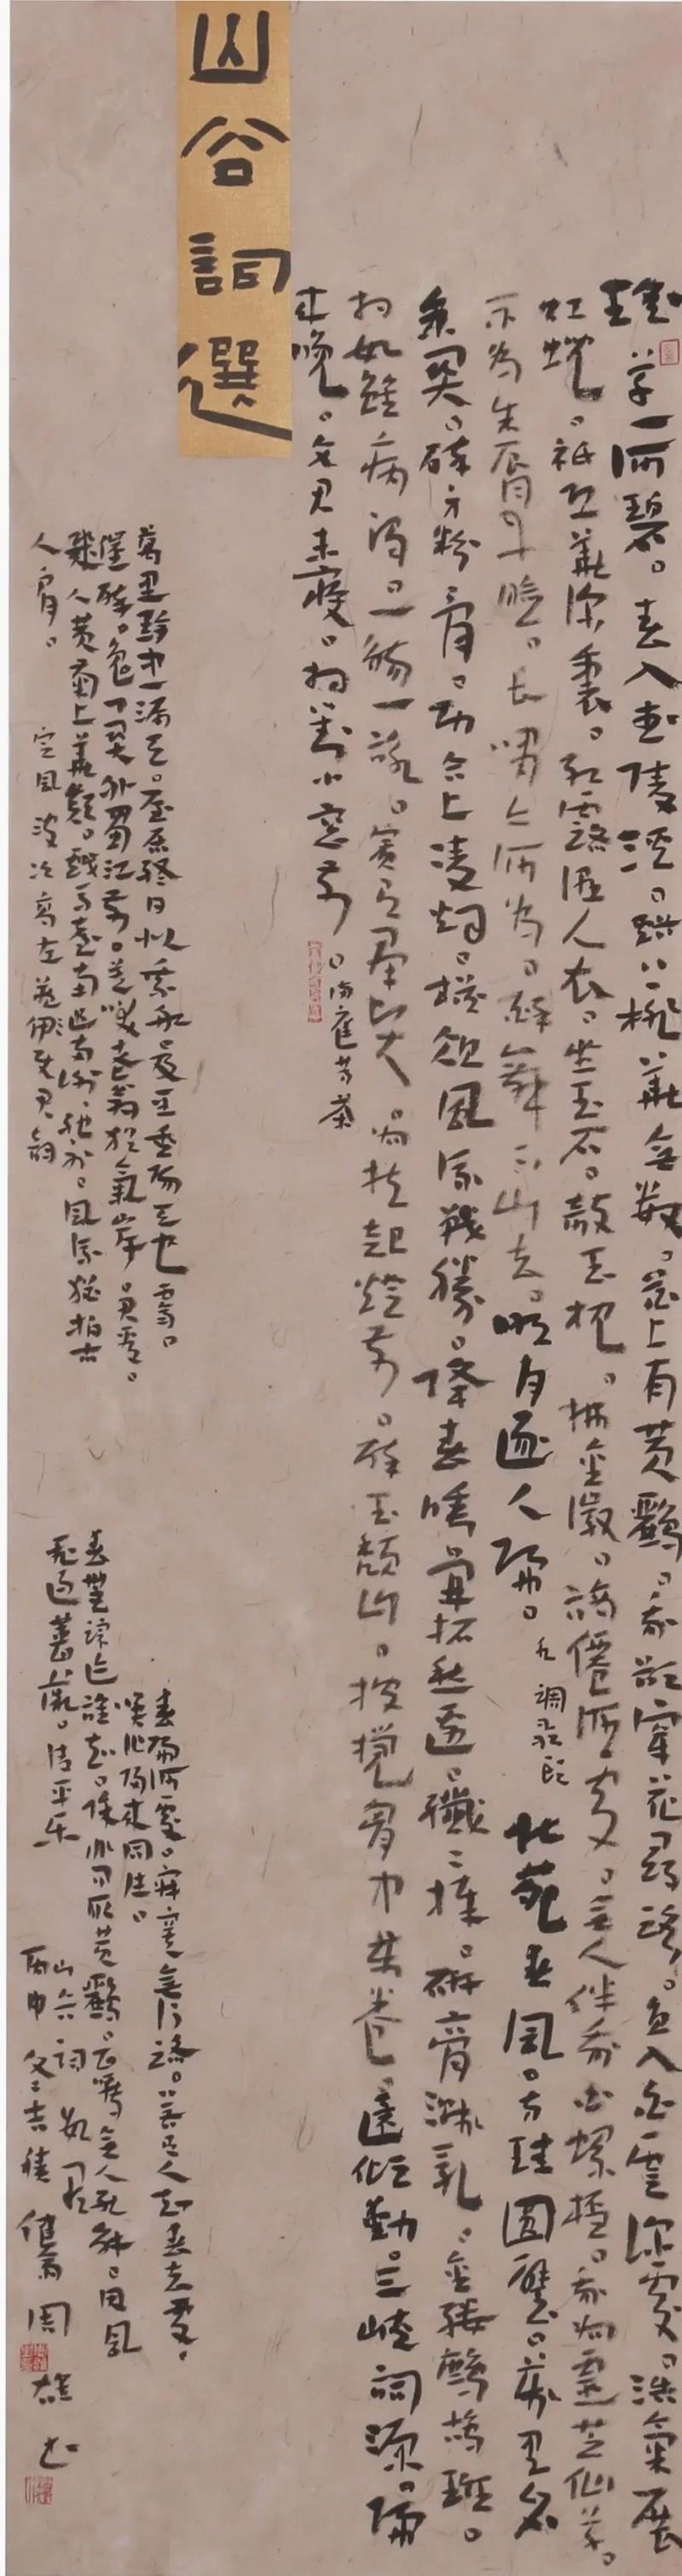 山谷詞選
瑤草一何碧。春入武陵溪。溪上桃花無數。花上有黃鸝。我欲穿花尋路。直入白雲深處。浩氣展
虹蜺。祇恐花深裏。紅露濕人衣。坐玉石。敲玉枕。拂金徽。謫僊何處。無人伴我白螺杯。我為靈芝仙草。
不為朱唇丹臉。長嘯亦何為。醉舞下山去。明月逐人歸。水調歌頭 北苑春風。方珪圓璧。萬里名
京關。碎身粉骨。功合上凌烟。樽俎風流戰勝。降春睡開拓愁邊。纖纖捧。研膏濺乳。金縷鷓鴣斑。
相如雖病渴。一觴一詠。賓有群賢。為扶起燈前。醉玉頹山。搜攪胸中萬卷。還傾動三峽詞源。歸
來晚。文君未寢。相對小窗前。滿庭芳茶
萬里黔中一漏天。屋居終日似乘船。及至重陽天也霽。
催醉。鬼門關外蜀江前。莫笑老翁猶氣岸。君看。
幾人黃菊上華顛。戲馬臺南追兩謝。馳射。風流猶拍古
人肩。 定風波次高左藏使君韻
春歸何處。寂寞無行路。若有人知春去處。
喚取歸來同住。
春無踪迹誰知。除非問取黃鸝。百囀無人能解。因風
飛過薔薇。清平樂
山谷詞數闋
丙申冬之吉 周雄書